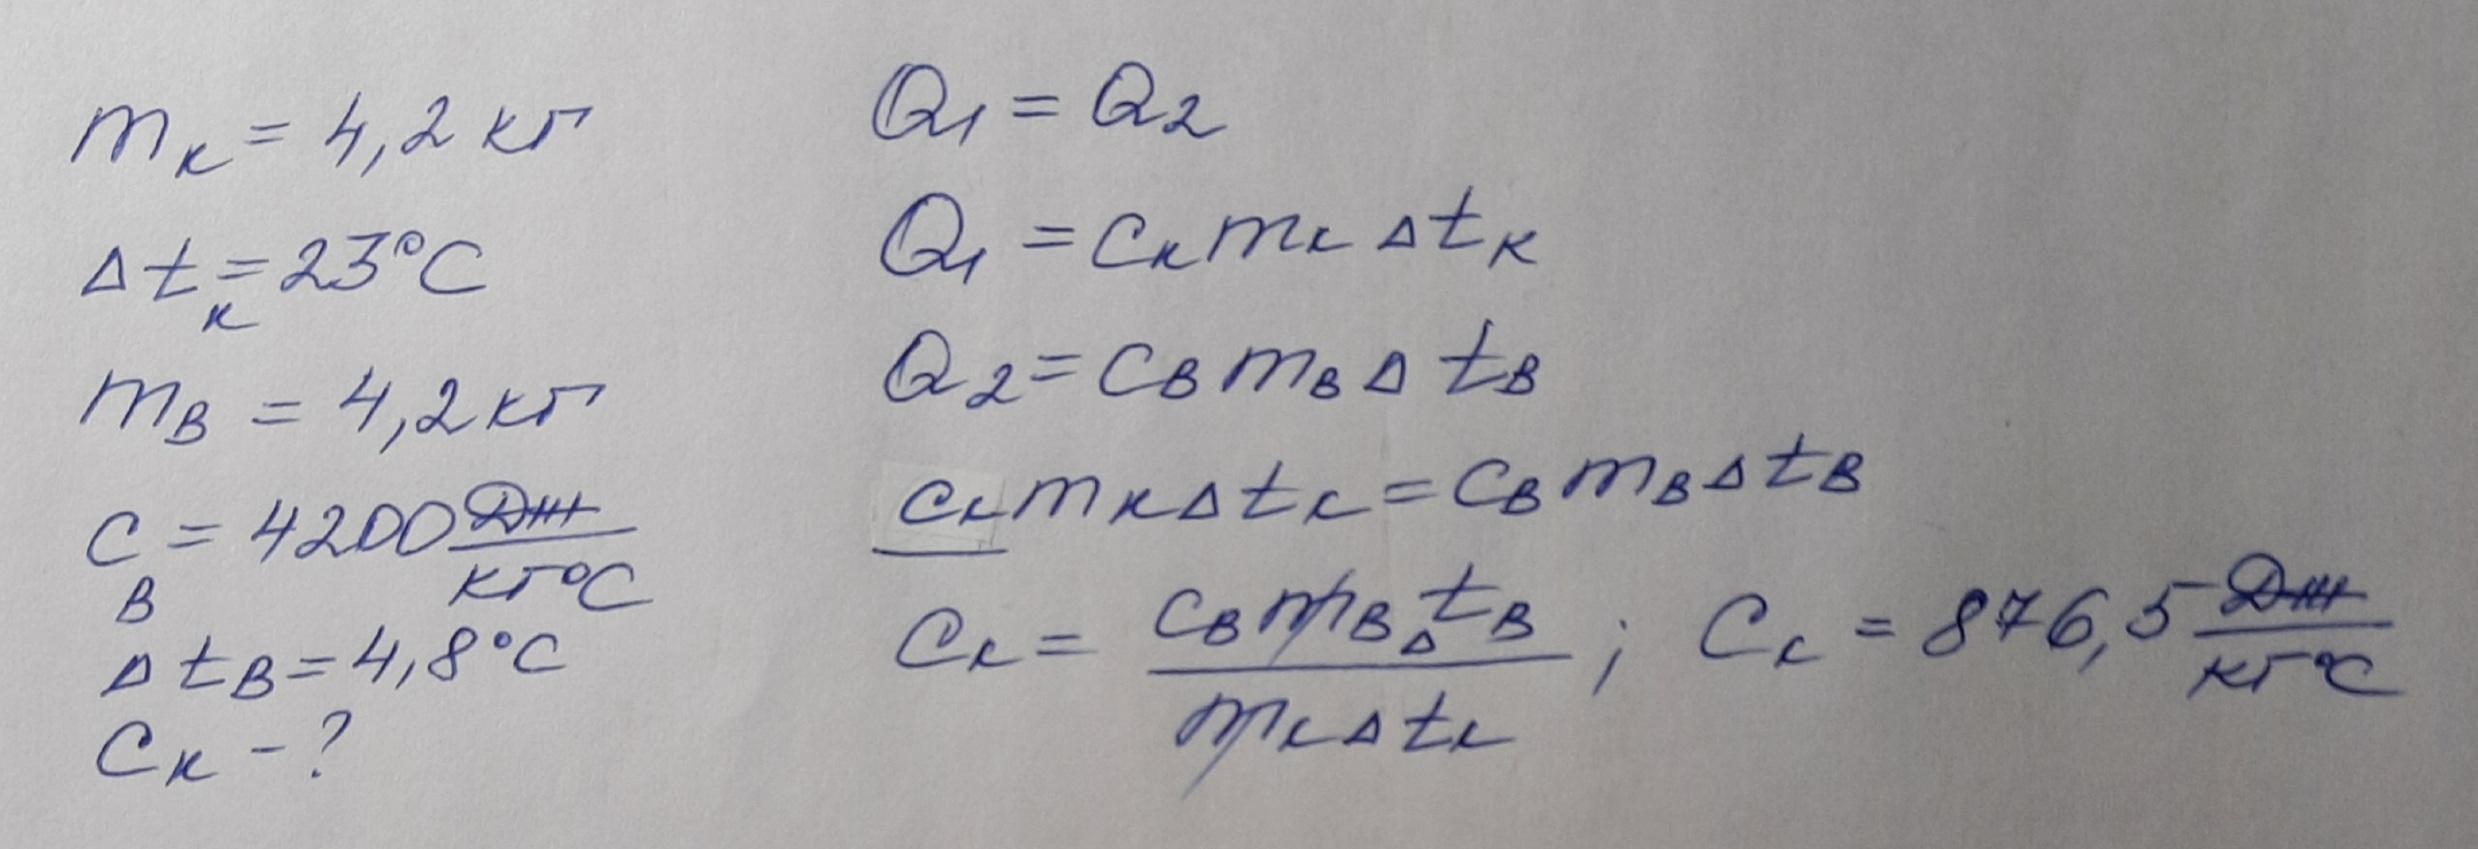 mк = 4,2 кг
Δtк = 23°C
mв = 4,2 кг
cв = 4200 Дж/кг°C
Δtв = 4,8°C
cк - ?
Q1 = Q2
Q1 = cк mк Δtк
Q2 = cв mв Δtв
cк mк Δtк = cв mв Δtв
cк = cв mв Δtв / mк Δtк ; cк = 876,5 Дж/кг°C